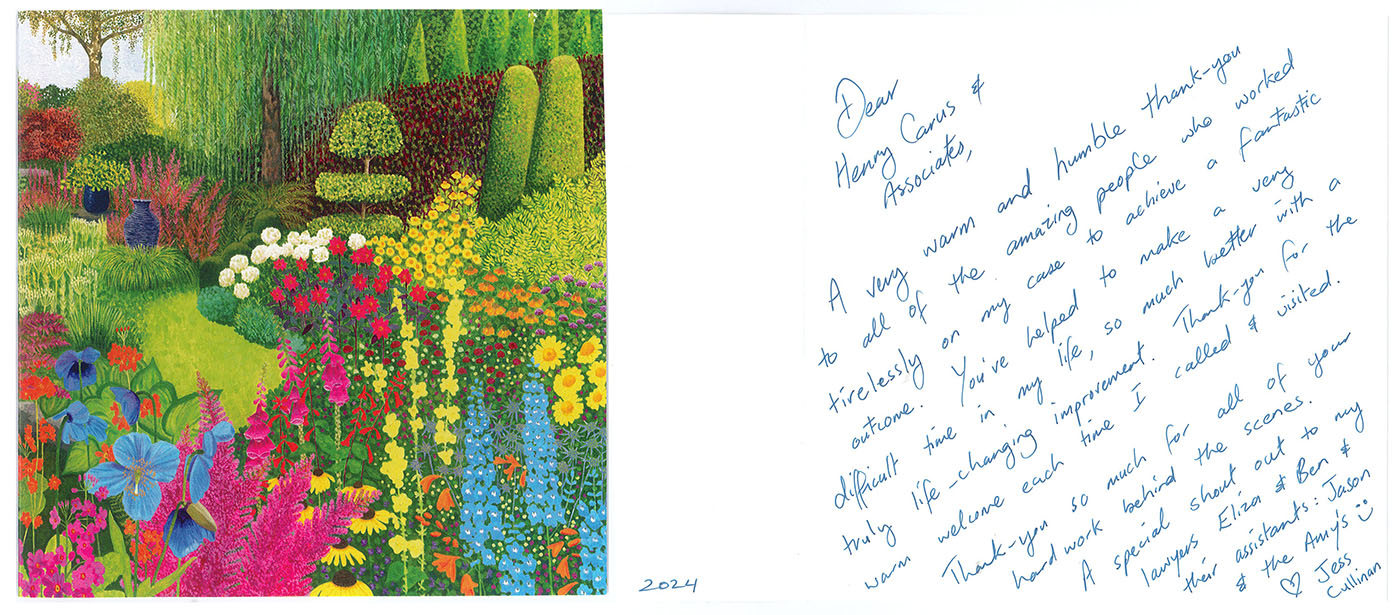 Dear
Henry Carus &
Associates,
A very warm and humble thank-you
to all of the amazing people who worked
tirelessly on my case to achieve a fantastic
outcome. You've helped to make a very
difficult time in my life, so much better with a
truly life-changing improvement. Thank-you for the
warm welcome each time I called & visited.
Thank-you so much for all of your
hard work behind the scenes.
A special shout out to my
lawyers Eliza & Ben &
their assistants: Jason
& the Amy's :)
♡ Jess
Cullinan
2024